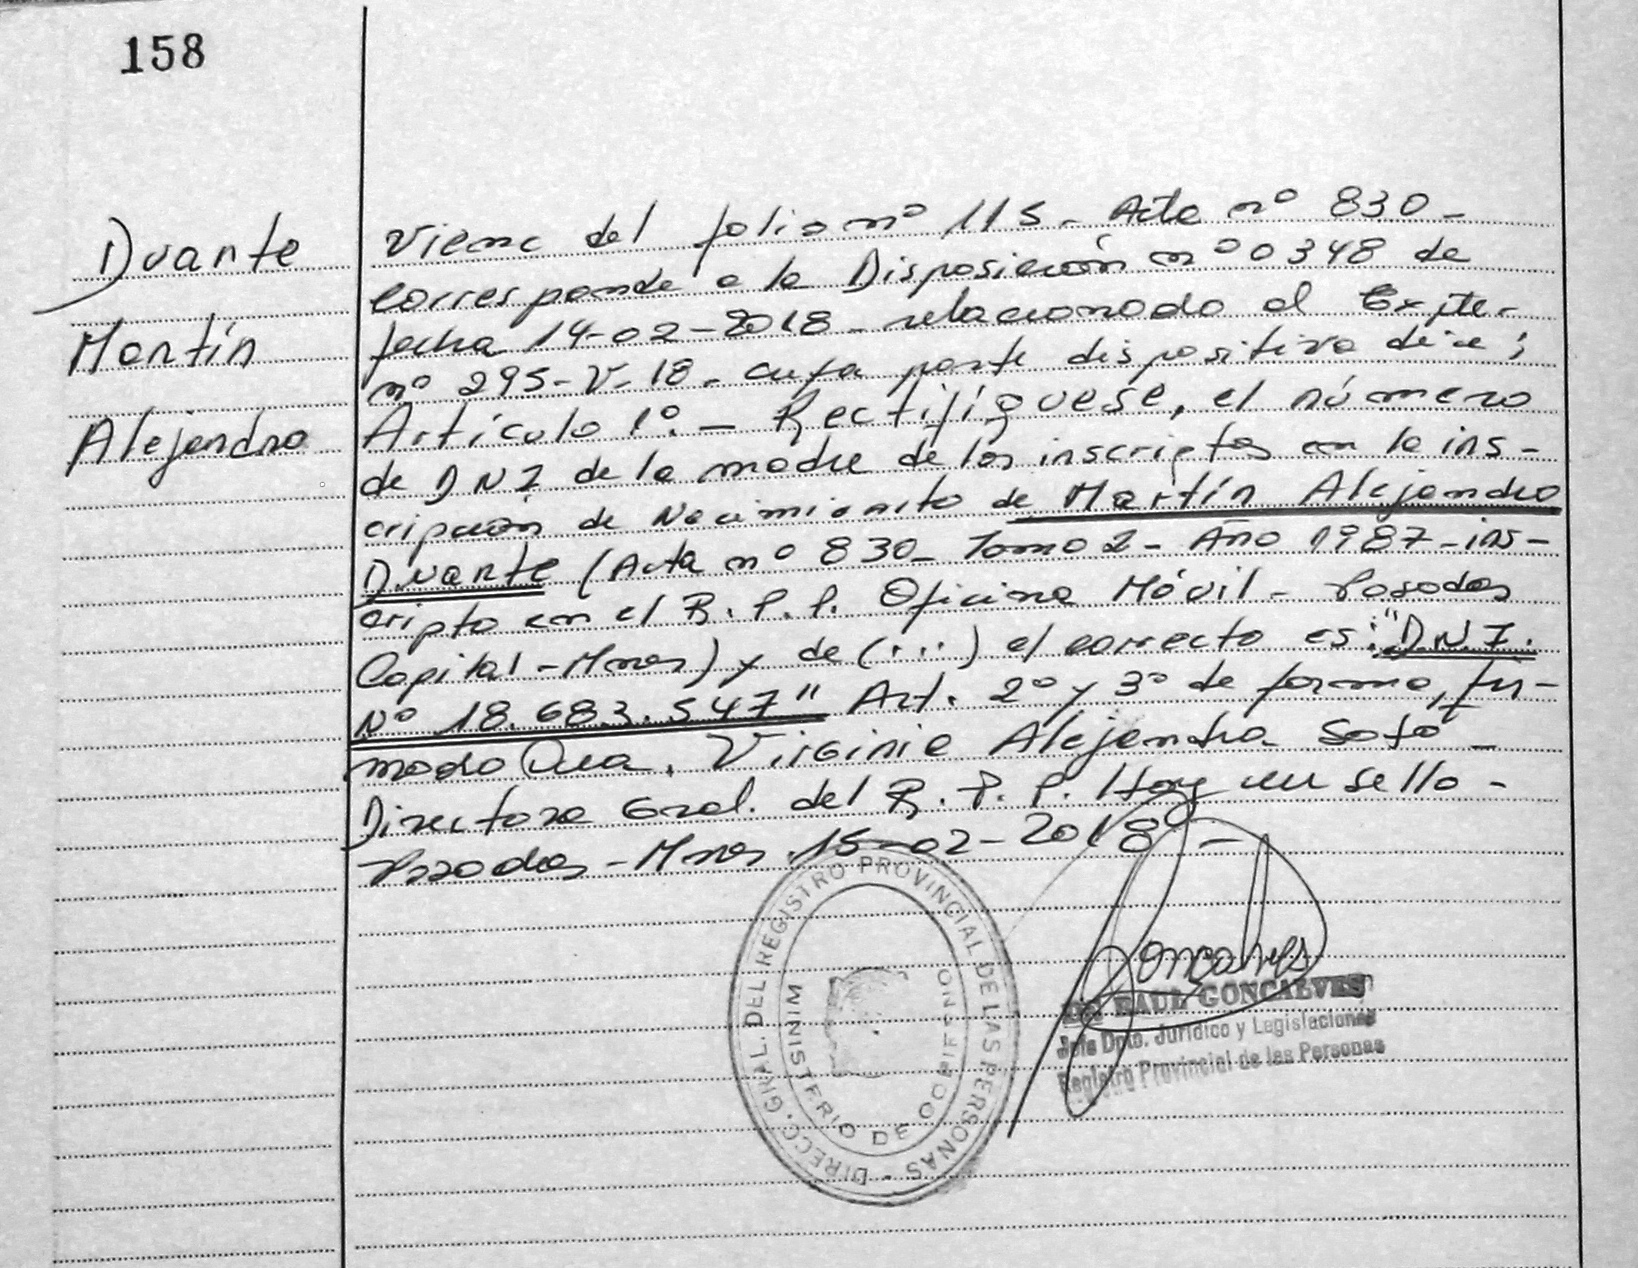 158
Duante
Martín
Alejandro
Viene del folio nº 115 - Acta nº 830 -
corresponde a la Disposición nº 0348 de
fecha 14-02-2018 - relacionado al Expte-
nº 295-V-18 - cuya parte dispositiva dice;
Artículo 1º. - Rectifíquese, el número
de DNI de la madre de los inscriptos en la ins-
cripción de Nacimiento de Martín Alejandro
Duarte (Acta nº 830 - Tomo 2 - Año 1987 - ins-
cripto en el R.P.P. Oficina Móvil - Posadas
Capital - Mnes) y de (...) el correcto es: "D.N.I.
Nº 18.683.547" Art. 2º y 3º de forma, fir-
mado Dra. Virginia Alejandra Soto -
Directora Gral. del R.P.P. Hay un sello -
Posadas - Mnes. 15-02-2018 -
DIRECC. GRAL. DEL REGISTRO PROVINCIAL DE LAS PERSONAS -
MINISTERIO DE GOBIERNO
Goncalves
DR RAUL GONCALVES
Jefe Dpto. Jurídico y Legislaciones
Registro Provincial de las Personas